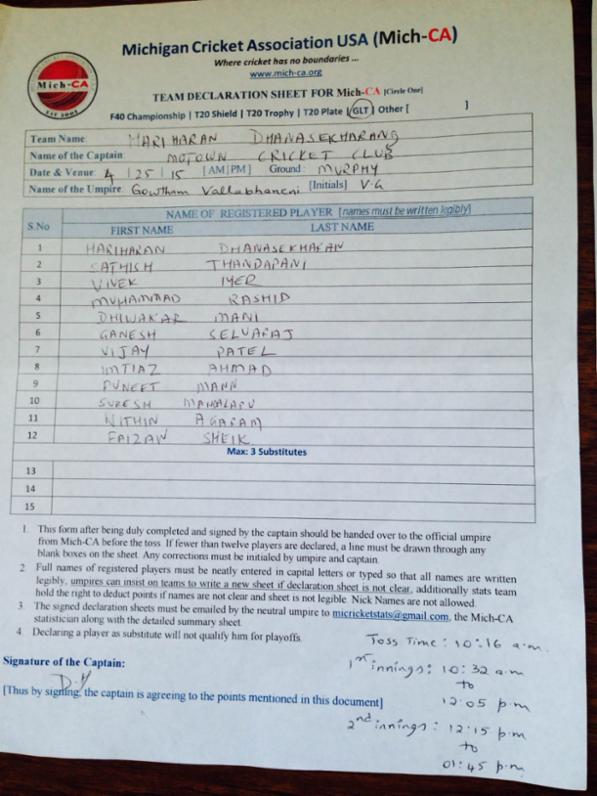 Michigan Cricket Association USA (Mich-CA)
Where cricket has no boundaries ...
www.mich-ca.org
Mich-CA
EST 2001
TEAM DECLARATION SHEET FOR Mich-CA [Circle One]
F40 Championship | T20 Shield | T20 Trophy | T20 Plate | GLT | Other [ ]
Team Name: HARIHARAN DHANASEKHARANG
Name of the Captain: MOTOWN CRICKET CLUB
Date & Venue: 4 | 25 | 15 [AM|PM] Ground: MURPHY
Name of the Umpire: Gowtham Vallabhaneni [Initials] V.G
NAME OF REGISTERED PLAYER [names must be written legibly]
S.No FIRST NAME LAST NAME
1 HARIHARAN DHANASEKHARAN
2 SATHISH THANDAPANI
3 VIVEK IYER
4 MUHAMMAD RASHID
5 DHIWAKAR MANI
6 GANESH SELVARAJ
7 VIJAY PATEL
8 IMTIAZ AHMAD
9 PUNEET MANN
10 SURESH MAMALAPU
11 NITHIN AGARAM
12 FAIZAN SHEIK
Max: 3 Substitutes
13
14
15
1. This form after being duly completed and signed by the captain should be handed over to the official umpire
from Mich-CA before the toss. If fewer than twelve players are declared, a line must be drawn through any
blank boxes on the sheet. Any corrections must be initialed by umpire and captain.
2. Full names of registered players must be neatly entered in capital letters or typed so that all names are written
legibly, umpires can insist on teams to write a new sheet if declaration sheet is not clear, additionally stats team
hold the right to deduct points if names are not clear and sheet is not legible. Nick Names are not allowed.
3. The signed declaration sheets must be emailed by the neutral umpire to micricketstats@gmail.com, the Mich-CA
statistician along with the detailed summary sheet.
4. Declaring a player as substitute will not qualify him for playoffs.
Toss Time: 10:16 a.m.
Signature of the Captain:
D.H
[Thus by signing, the captain is agreeing to the points mentioned in this document]
1st innings: 10:32 a.m
to
12:05 p.m
2nd innings: 12:15 p.m
to
01:45 p.m